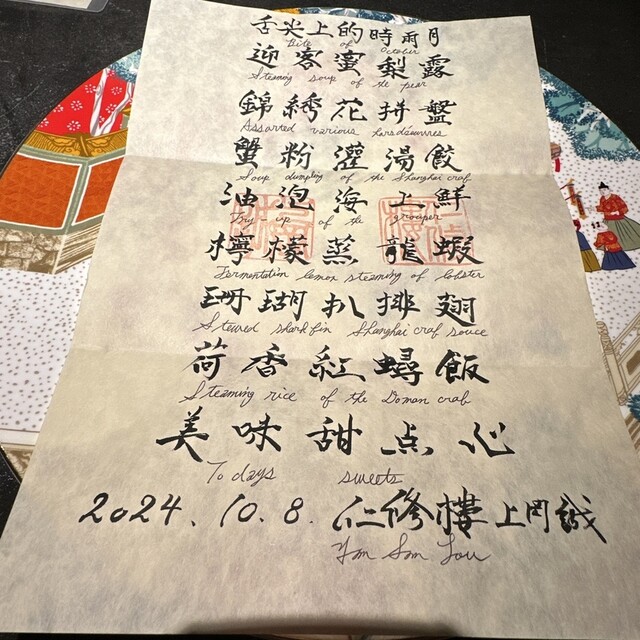 舌尖上的時雨月
Bite of October
迎客蜜梨露
Steaming soup of the pear
錦綉花拼盤
Assorted various horsdeuvres
蟹粉灌湯餃
Soup dumpling of the Shanghai crab
油泡海上鮮
Fry-up of the grouper
檸檬蒸龍蝦
Fermentation lemon steaming of lobster
珊瑚扒排翅
Stewed shark fin Shanghai crab souce
荷香紅蟳飯
Steaming rice of the Doman crab
美味甜点心
To days sweets
2024.10.8. 仁修樓 上岡誠
Yan Sau Lou